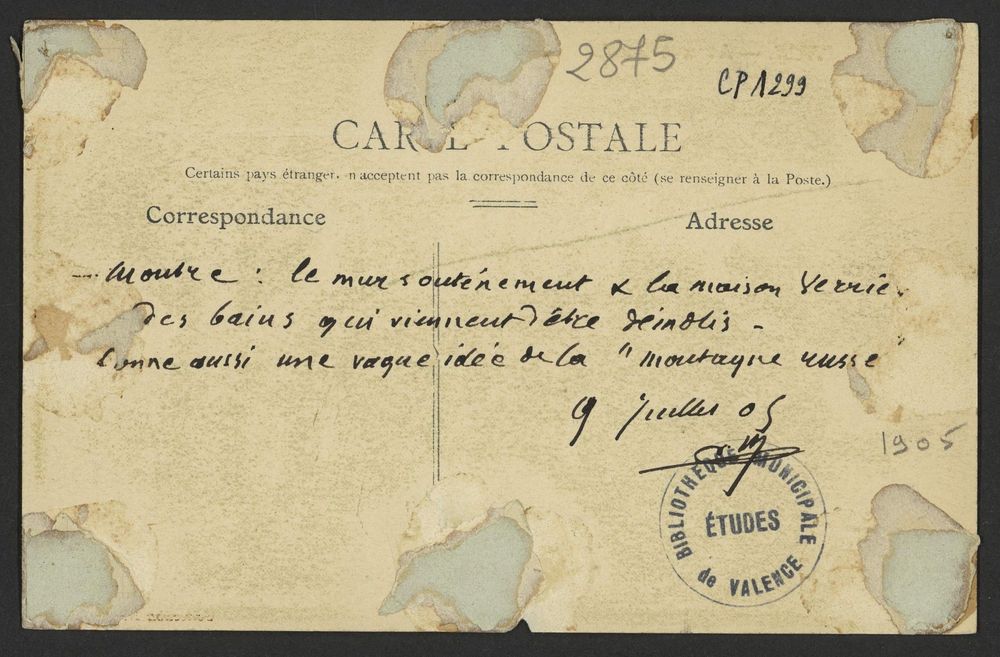 2875
CP 1299
CARTE POSTALE
Certains pays étrangers n'acceptent pas la correspondance de ce côté (se renseigner à la Poste.)
Correspondance
Adresse
Montre : le mur soutènement & la maison
des bains qui viennent d'être démolis -
Donne aussi une vague idée de la "montagne russe
9 Juillet 05
1905
BIBLIOTHÈQUE MUNICIPALE
ÉTUDES
de VALENCE